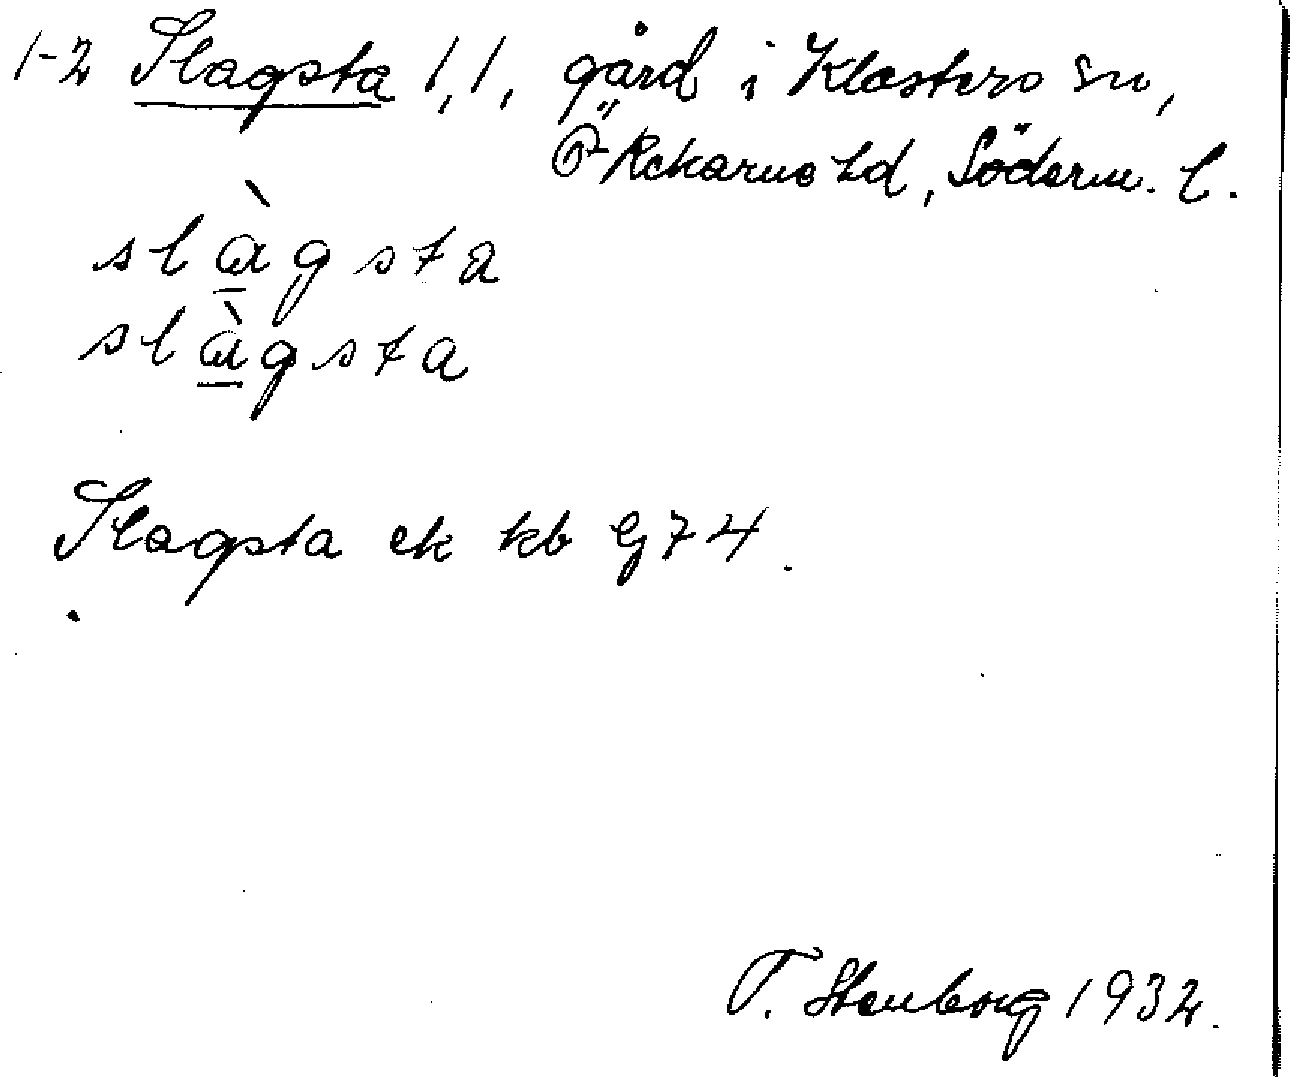 1-2 Slagsta 1,1, gård i Klosters sn,
Ö Rekarne hd, Söderm. l.
slàgsta
slàgsta
Slagsta ek kb G74.
T. Stenborg 1932.